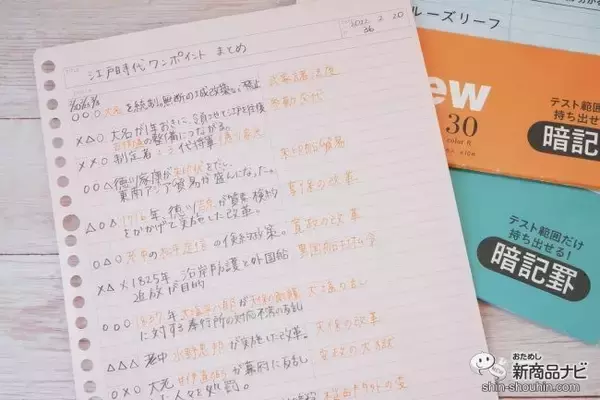 江戸時代ワンポイント まとめ
2022. 2. 20
○○○ 大名を統制し無断の城改築などを禁止 武家諸法度
×△○ 大名が1年おきに、領地と江戸を往復 参勤交代
の整備につながる。
××○ 制定者:3代将軍
○○△ 徳川家康が朱印状を出し、 朱印船貿易
東南アジア貿易が盛んになった。
△○△ 1716年、徳川吉宗が質素・倹約 享保の改革
をかかげて実施した改革。
○△○ 老中の松平定信の 寛政の改革
×△×1825年、沿岸防護と外国船
追放が目的
○○○ 1837年 大塩平八郎が 大塩の乱
に対する奉行所の対応不満の反乱
△△△ 老中 水野忠邦が実施した改革。 天保の改革
○×○ 大老 井伊直弼が幕府に反対し 安政の大獄
た人々を処罰。
桜田門外の変
ルーズリーフ
ew
30
color B
テスト範囲だけ
持ち出せる!
暗記
テスト範囲だけ
持ち出せる!
暗記罫
おためし
新商品ナビ
shin-shouhin.com